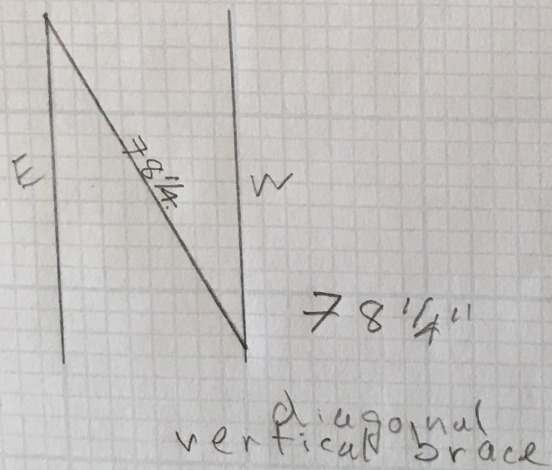 E
78 1/4
W
78 1/4"
diagonal
vertical brace